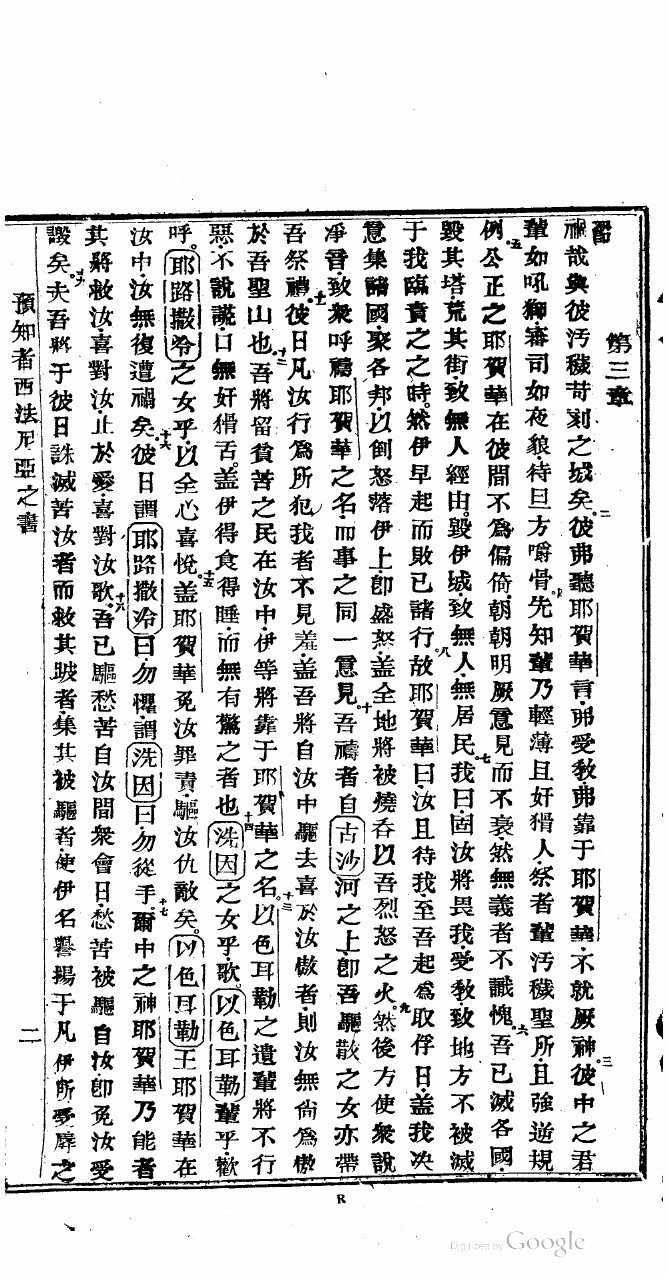 第三章
禍哉與彼汚穢苛刻之城矣彼弗聽耶賀華言弗受教弗靠于耶賀華不就厥神彼中之君
輩如吼獅審司如夜狼待旦方嚼骨先知輩乃輕薄且奸猾人祭者輩汚穢聖所且強逆規
例公正之耶賀華在彼間不爲偏倚朝朝明厥意見而不衰然無義者不識愧吾已滅各國
毀其塔荒其街致無人經由毀伊城致無人無居民我曰固汝將畏我受教致地方不被滅
于我臨責之之時然伊早起而敗已諸行故耶賀華曰汝且待我至吾起爲取俘日蓋我决
意集諸國聚各邦以倒怒落伊上卽盛怒蓋全地將被燒吞以吾烈怒之火然後方使衆說
凈音致衆呼禱耶賀華之名而事之同一意見吾禱者自古沙河之上卽吾驅散之女亦帶
吾祭禮彼日凡汝行爲所犯我者不見羞蓋吾將自汝中驅去喜於汝傲者則汝無尙爲傲
於吾聖山也吾將留貧苦之民在汝中伊等將靠于耶賀華之名以色耳勒之遺輩將不行
惡不說謊口無奸猾舌蓋伊得食得睡而無有驚之者也洗因之女乎歌以色耳勒輩乎歡
呼耶路撒冷之女乎以全心喜悅蓋耶賀華免汝罪責驅汝仇敵矣以色耳勒王耶賀華在
汝中汝無復遭禍矣彼日謂耶路撒冷曰勿懼謂洗因曰勿從手爾中之神耶賀華乃能者
其將救汝喜對汝止於愛喜對汝歌吾已驅愁苦自汝間衆會日愁苦被驅自汝卽免汝受
譭矣夫吾將于彼日誅滅苦汝者而救其跛者集其被驅者使伊名譽揚于凡伊所受辱之
預知者西法尼亞之書
二
R
Digitized by Google